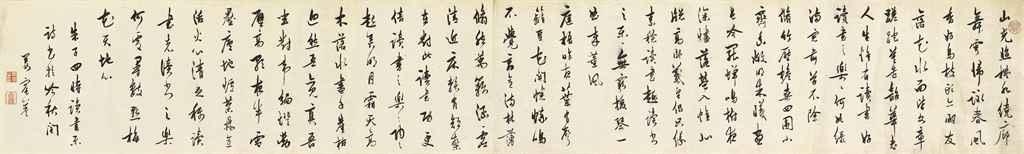 山光照檻水繞廊
舞雩歸詠春風
香好鳥枝頭亦朋友
落花水面皆文章
蹉跎莫遣韶華老
人生惟有讀書好
讀書之樂樂何如綠
滿窗前草不除
修竹壓檐桑四圍小
齋幽敞明朱曦晝
長吟罷蟬鳴樹夜
深燼落螢入幃北
牕高臥羲皇侶只緣
素稔讀書趣讀書
之樂樂無窮撫琴一
曲來薰風
庭前昨夜葉有聲
籬豆花開蟋蟀鳴
不覺商意滿林薄
蕭然萬籟涵虛
清近床賴有短檠
在對此讀書功更
倍讀書之樂樂陶陶
起弄明月霜天高
木落水盡千崖枯
迥然吾亦見真吾
坐對韋編燈動
壁高歌夜半雪
壓廬地爐茶鼎烹
活火心清足稱讀
書者讀書之樂
何處尋數點梅
花天地心
朱子四時讀書樂
詩書於吟秋閣